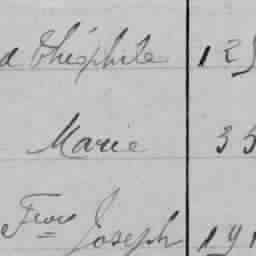 d Théophile 125
Marie 35
Frois Joseph 191